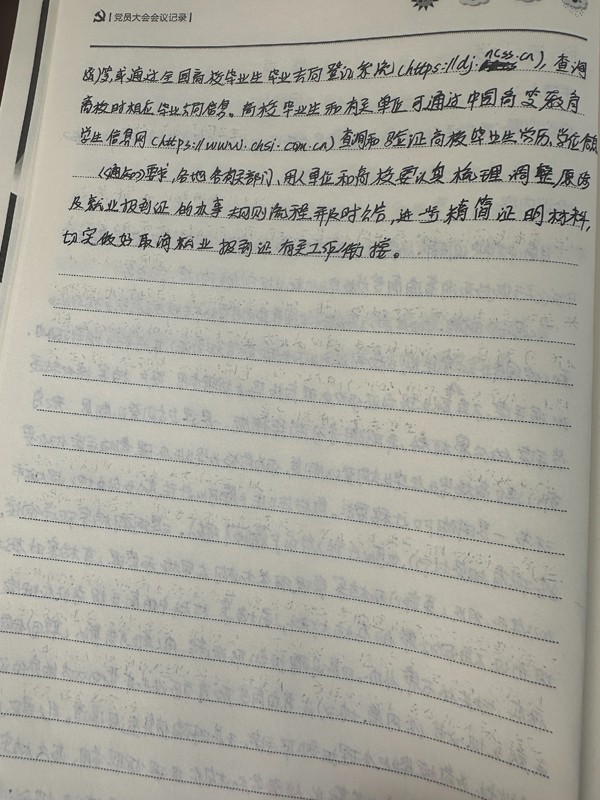 党员大会会议记录
或通过全国高校毕业生毕业去向登记系统(https://dj.ncss.cn),查询
离校时相应毕业去向信息。高校毕业生和有关单位可通过中国高等教育
学生信息网(https://www.chsi.com.cn)查询和验证高校毕业生学历、学位信息
《通知》要求,各地各有关部门、用人单位和高校要认真梳理调整原涉
及就业报到证的办事规则流程并及时公告,进一步精简证明材料,
切实做好取消就业报到证有关工作衔接。